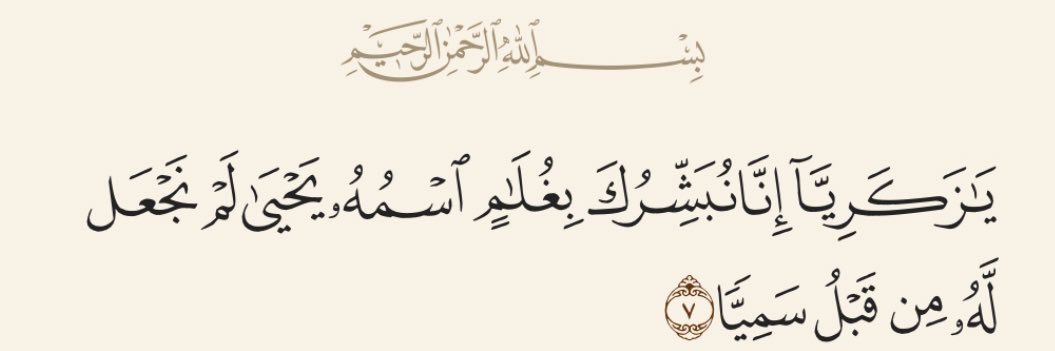 بِسْمِ ٱللَّهِ ٱلرَّحْمَٰنِ ٱلرَّحِيمِ
يَٰزَكَرِيَّآ إِنَّا نُبَشِّرُكَ بِغُلَٰمٍ ٱسْمُهُۥ يَحْيَىٰ لَمْ نَجْعَل
لَّهُۥ مِن قَبْلُ سَمِيًّا ٧